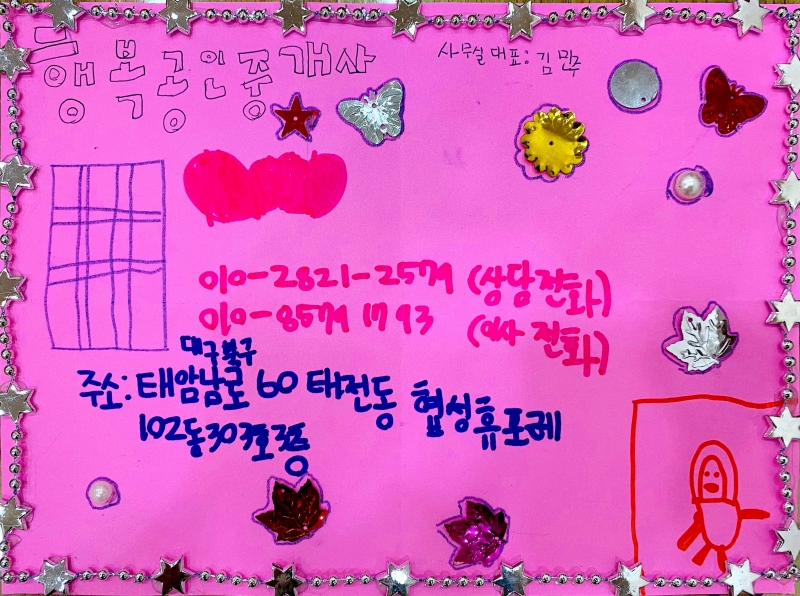 행복공인중개사
사무실 대표: 김민주
010-2821-2579 (상담전화)
010-8579 1793 (이사 전화)
대구북구
주소: 태암남로 60 태전동 협성휴포레
102동303호3층